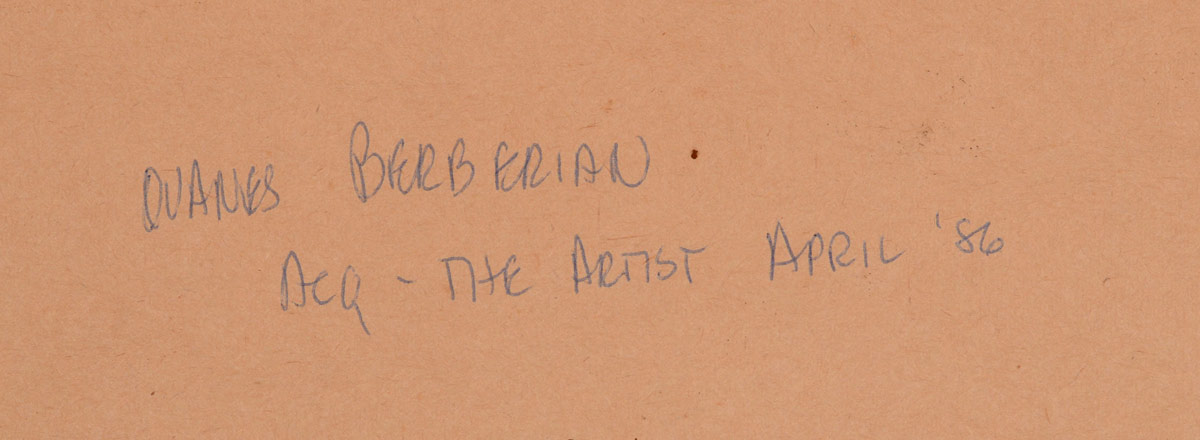 OVANES BERBERIAN
ACQ - THE ARTIST APRIL '86